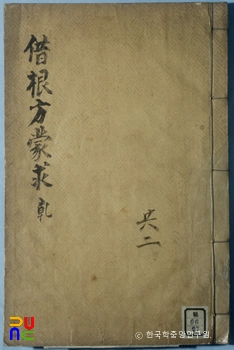 借根方蒙求 乹
共二
ⓒ 한국학중앙연구원